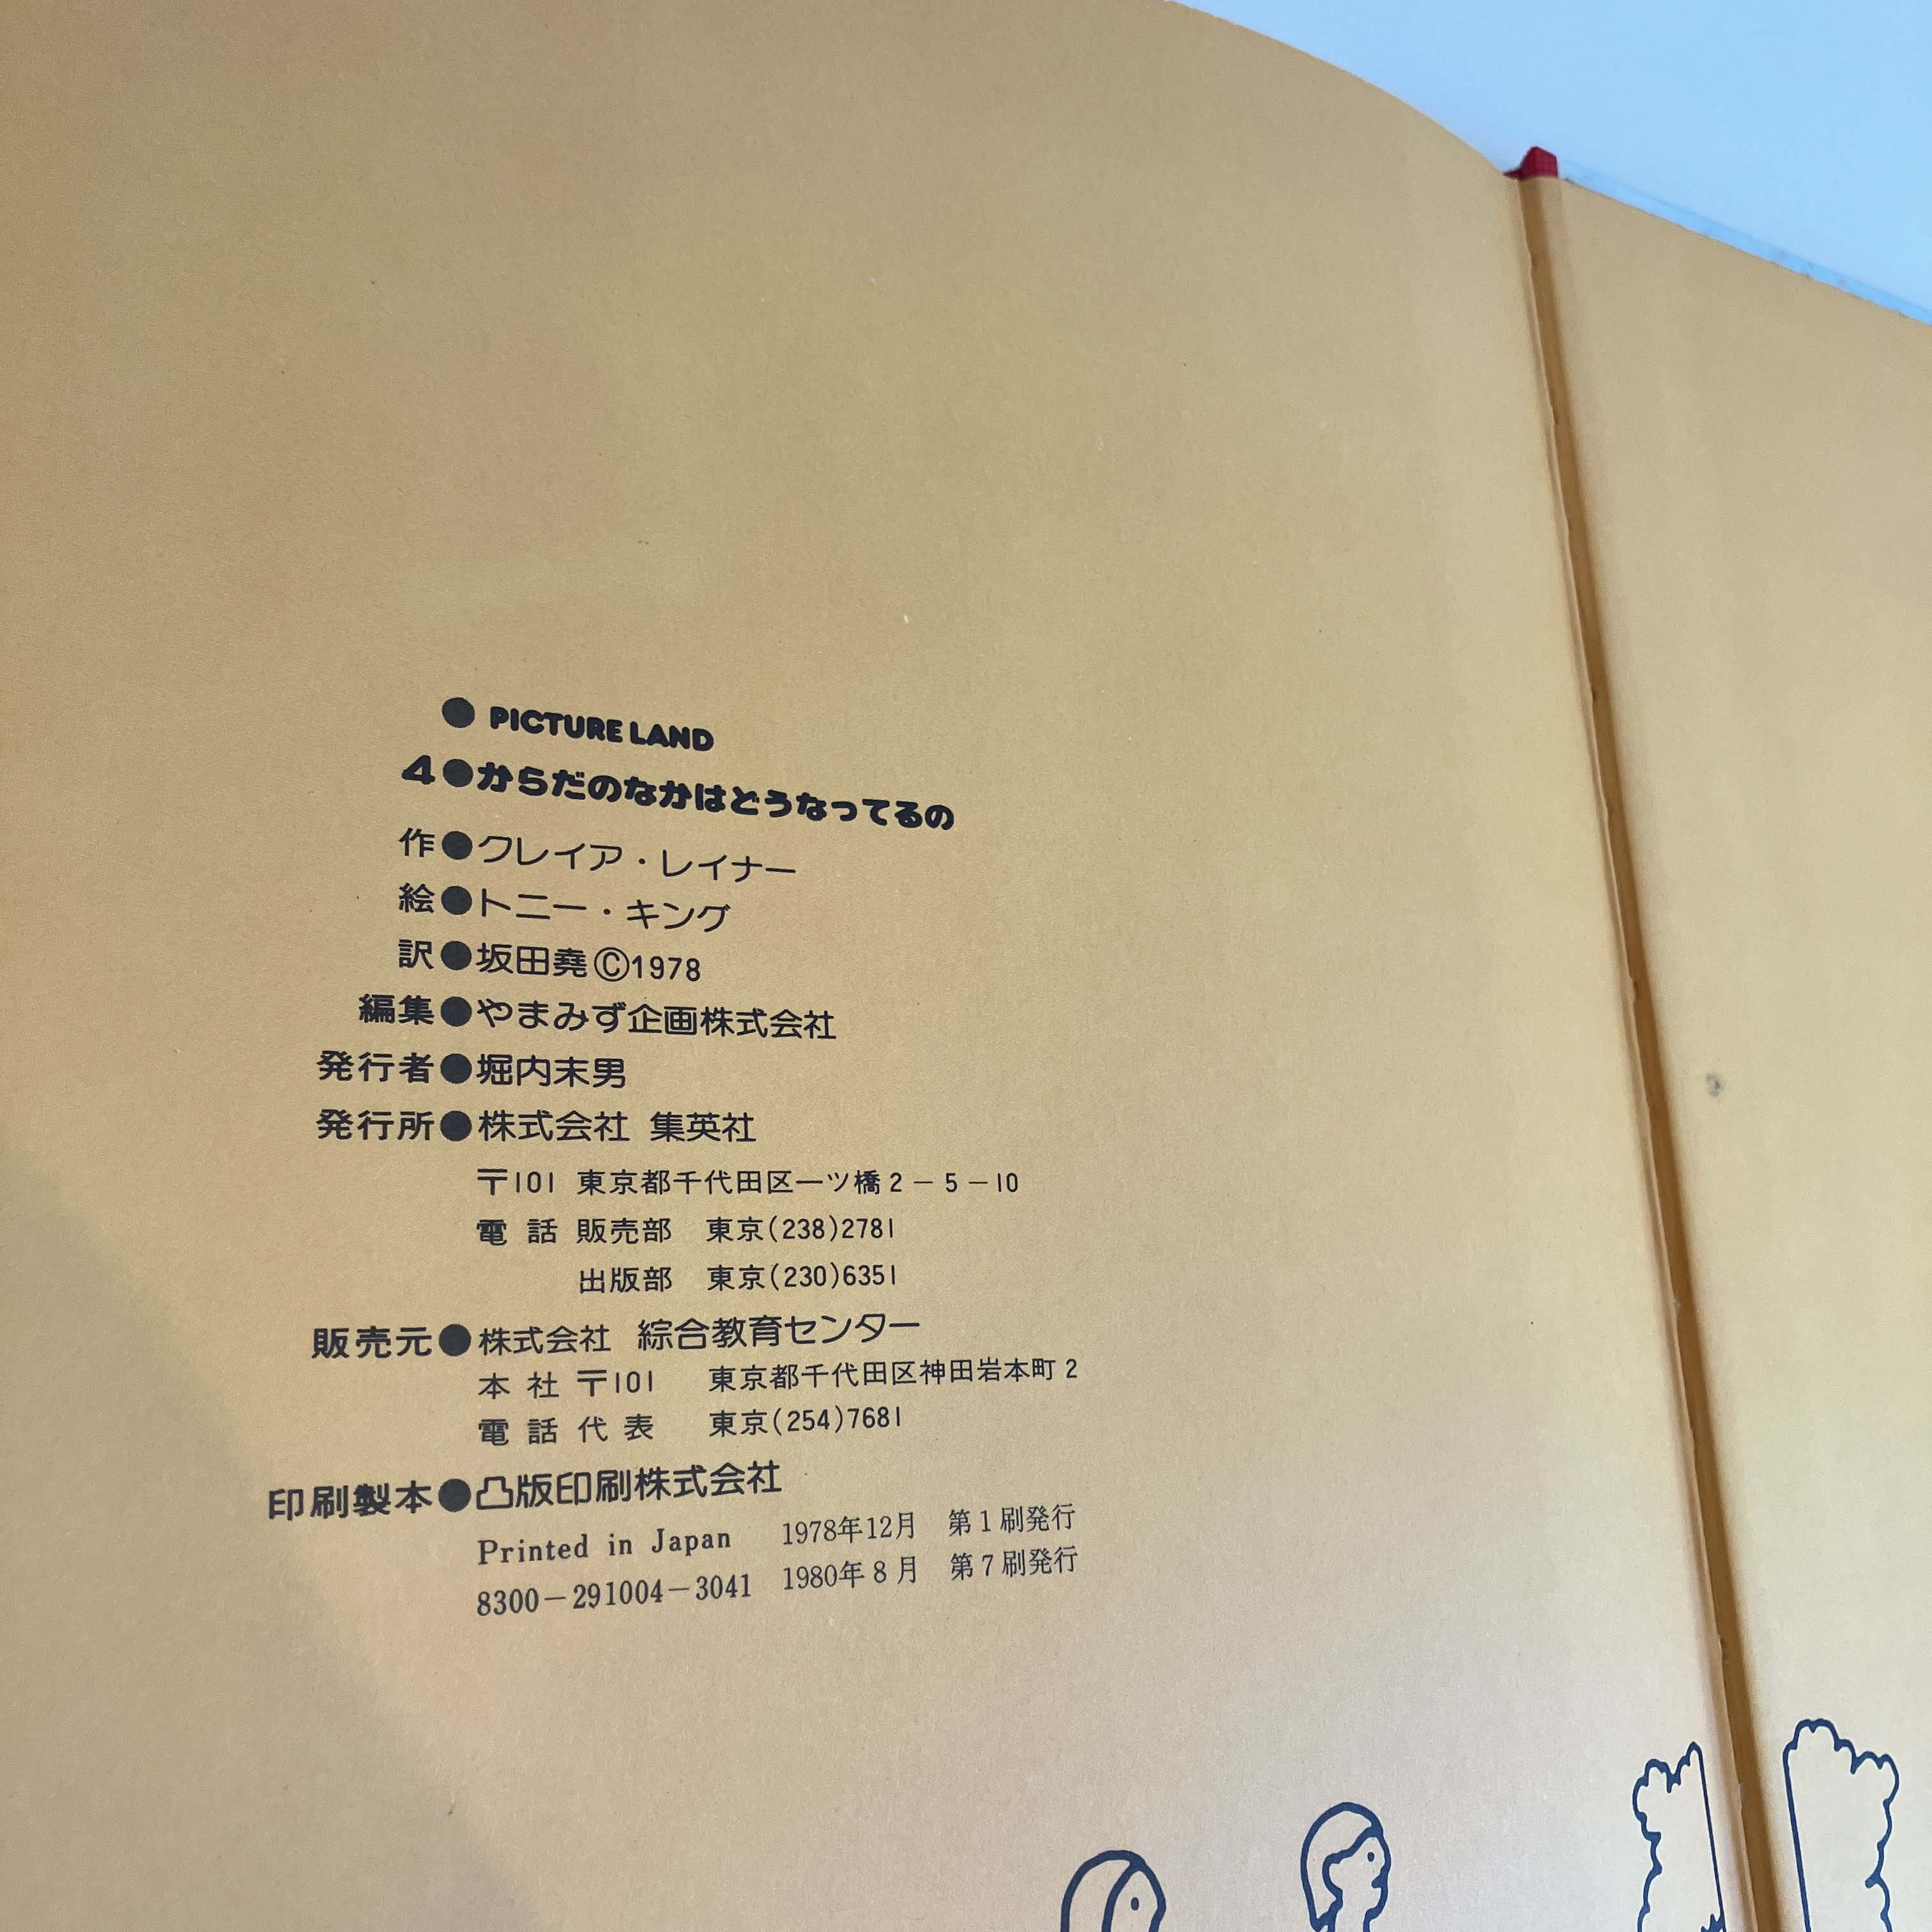 ● PICTURE LAND
4●からだのなかはどうなってるの
作●クレイア・レイナー
絵●トニー・キング
訳●坂田堯Ⓒ1978
編集●やまみず企画株式会社
発行者●堀内末男
発行所●株式会社 集英社
〒101 東京都千代田区一ツ橋2－5－10
電話 販売部 東京(238)2781
出版部 東京(230)6351
販売元●株式会社 綜合教育センター
本社 〒101 東京都千代田区神田岩本町2
電話代表 東京(254)7681
印刷製本●凸版印刷株式会社
Printed in Japan 1978年12月 第1刷発行
8300－291004－3041 1980年8月 第7刷発行